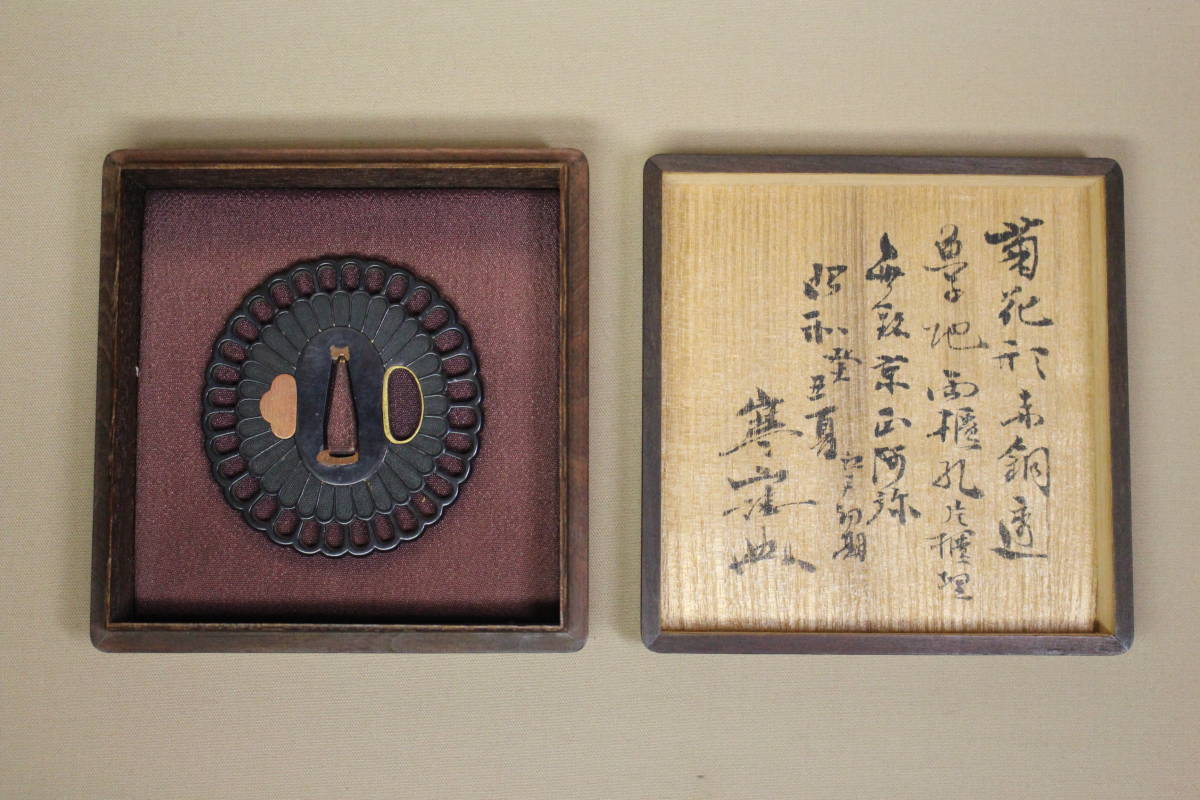 菊花形赤銅透
魚子地両櫃孔片櫃埋
無銘京正阿弥
江戸初期
昭和癸丑夏
寒山誌